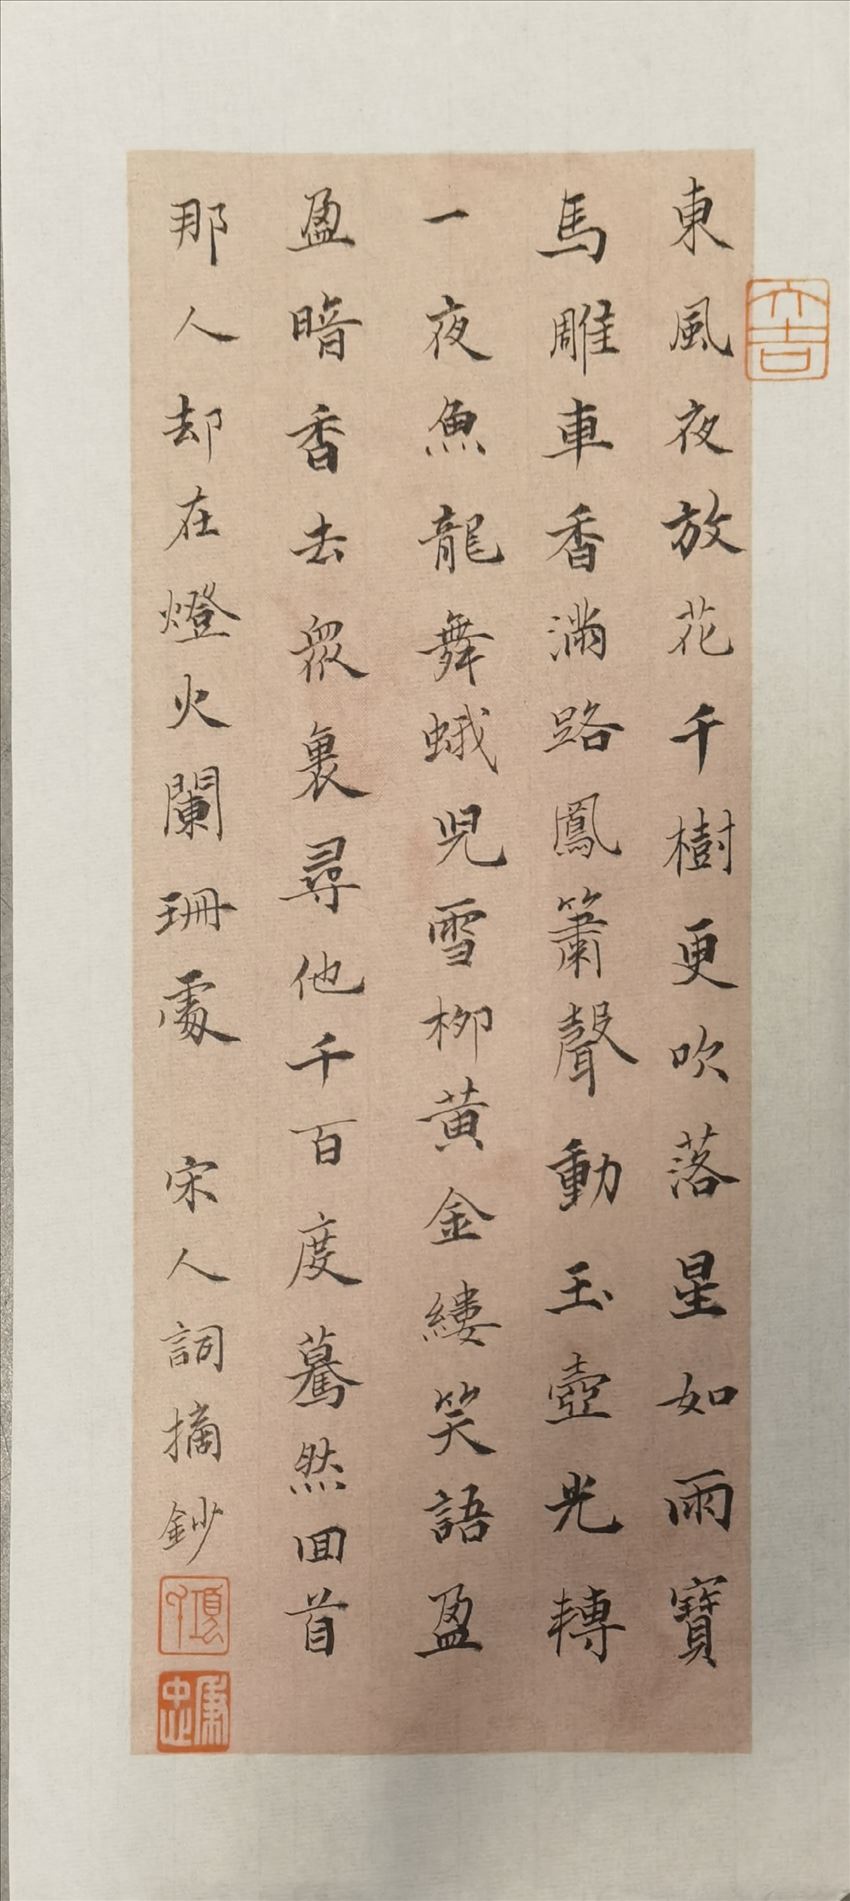 東風夜放花千樹更吹落星如雨寶
馬雕車香滿路鳳簫聲動玉壺光轉
一夜魚龍舞蛾兒雪柳黄金縷笑語盈
盈暗香去衆裏尋他千百度驀然回首
那人却在燈火闌珊處 宋人詞摘鈔
大吉